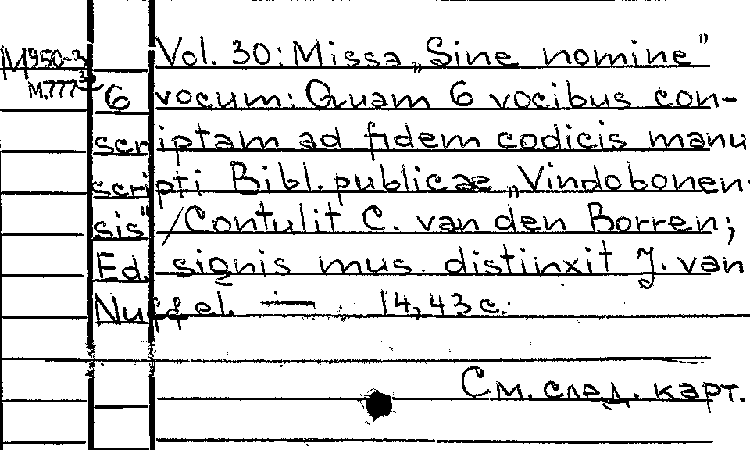 М950-3 Vol. 30: Missa „Sine nomine"
М.777 6 vocum: Quam 6 vocibus con-
scriptam ad fidem codicis manu
scripti Bibl. publicae „Vindobonen-
sis" / Contulit C. van den Borren;
Ed. signis mus distinxit J. van
Nuffel. — 14,43 с.
См. след. карт.